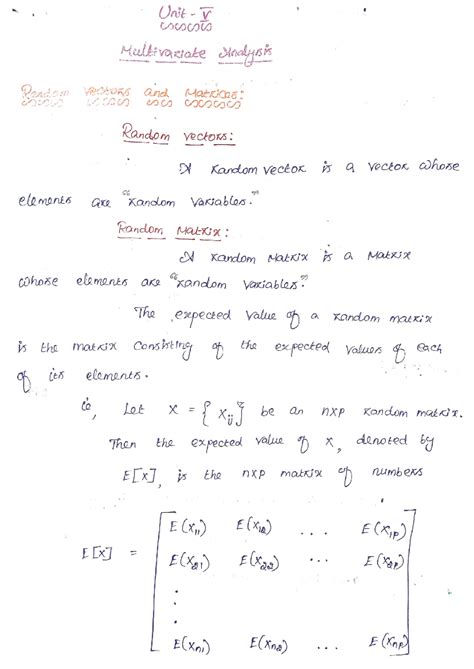 Unit - V
Multivariate Analysis
Random vectors and Matrices:
Random vectors:
A random vector is a vector whose
elements are "random variables."
Random Matrix:
A random matrix is a Matrix
whose elements are "random variables."
The expected value of a random matrix
is the matrix consisting of the expected values of each
of its elements.
ie, Let X = { Xij } be an nxp random matrix.
Then the expected value of X, denoted by
E[X], is the nxp matrix of numbers
E[X] = [ E(X11) E(X12) ... E(X1p)
E(X21) E(X22) ... E(X2p)
⋮
E(Xn1) E(Xn2) ... E(Xnp) ]